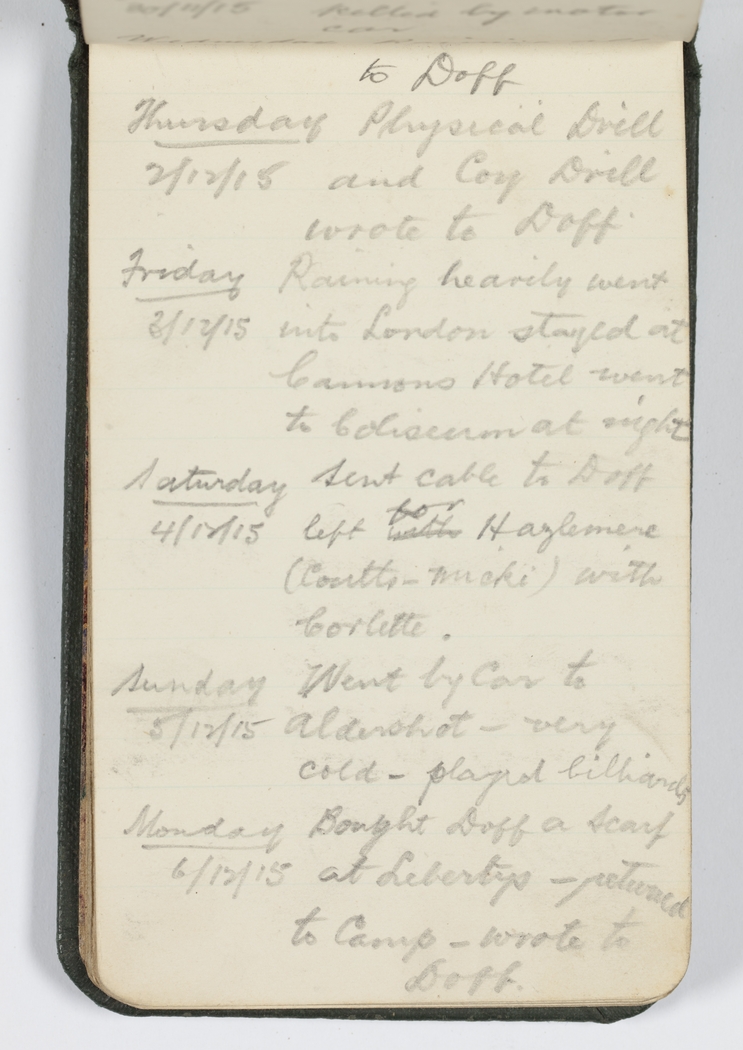 30/11/15 killed by motor
car
to Doff
Thursday Physical Drill
2/12/15 and Coy Drill
wrote to Doff
Friday Raining heavily went
3/12/15 into London stayed at
Cannons Hotel went
to Coliseum at night
Saturday sent cable to Doff
4/12/15 left with for Hazlemere
(Coutts-Micki) with
Corlette.
Sunday Went by Car to
5/12/15 Aldershot - very
cold - played billiards
Monday Bought Doff a Scarf
6/12/15 at Libertys - returned
to Camp - wrote to
Doff.